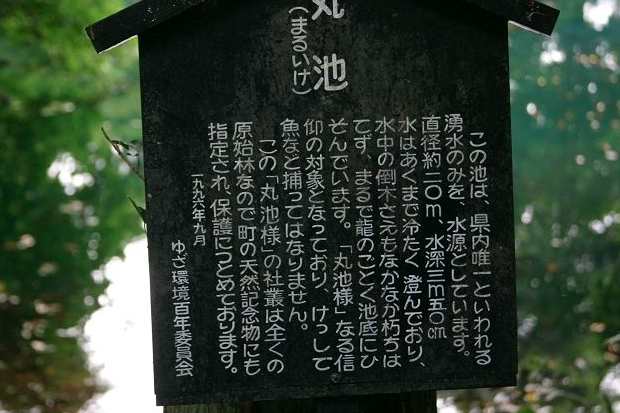 丸池
(まるいけ)
この池は、県内唯一といわれる
湧水のみを、水源としています。
直径約二〇m、水深三m五〇cm
水はあくまで冷たく、澄んでおり、
水中の倒木さえもなかなか朽ちは
てず、まるで龍のごとく池底にひ
そんでいます。「丸池様」なる信
仰の対象となっており、けっして
魚など捕ってはなりません。
この「丸池様」の社叢は全くの
原始林なので町の天然記念物にも
指定され、保護につとめております。
一九九六年九月
ゆざ環境百年委員会